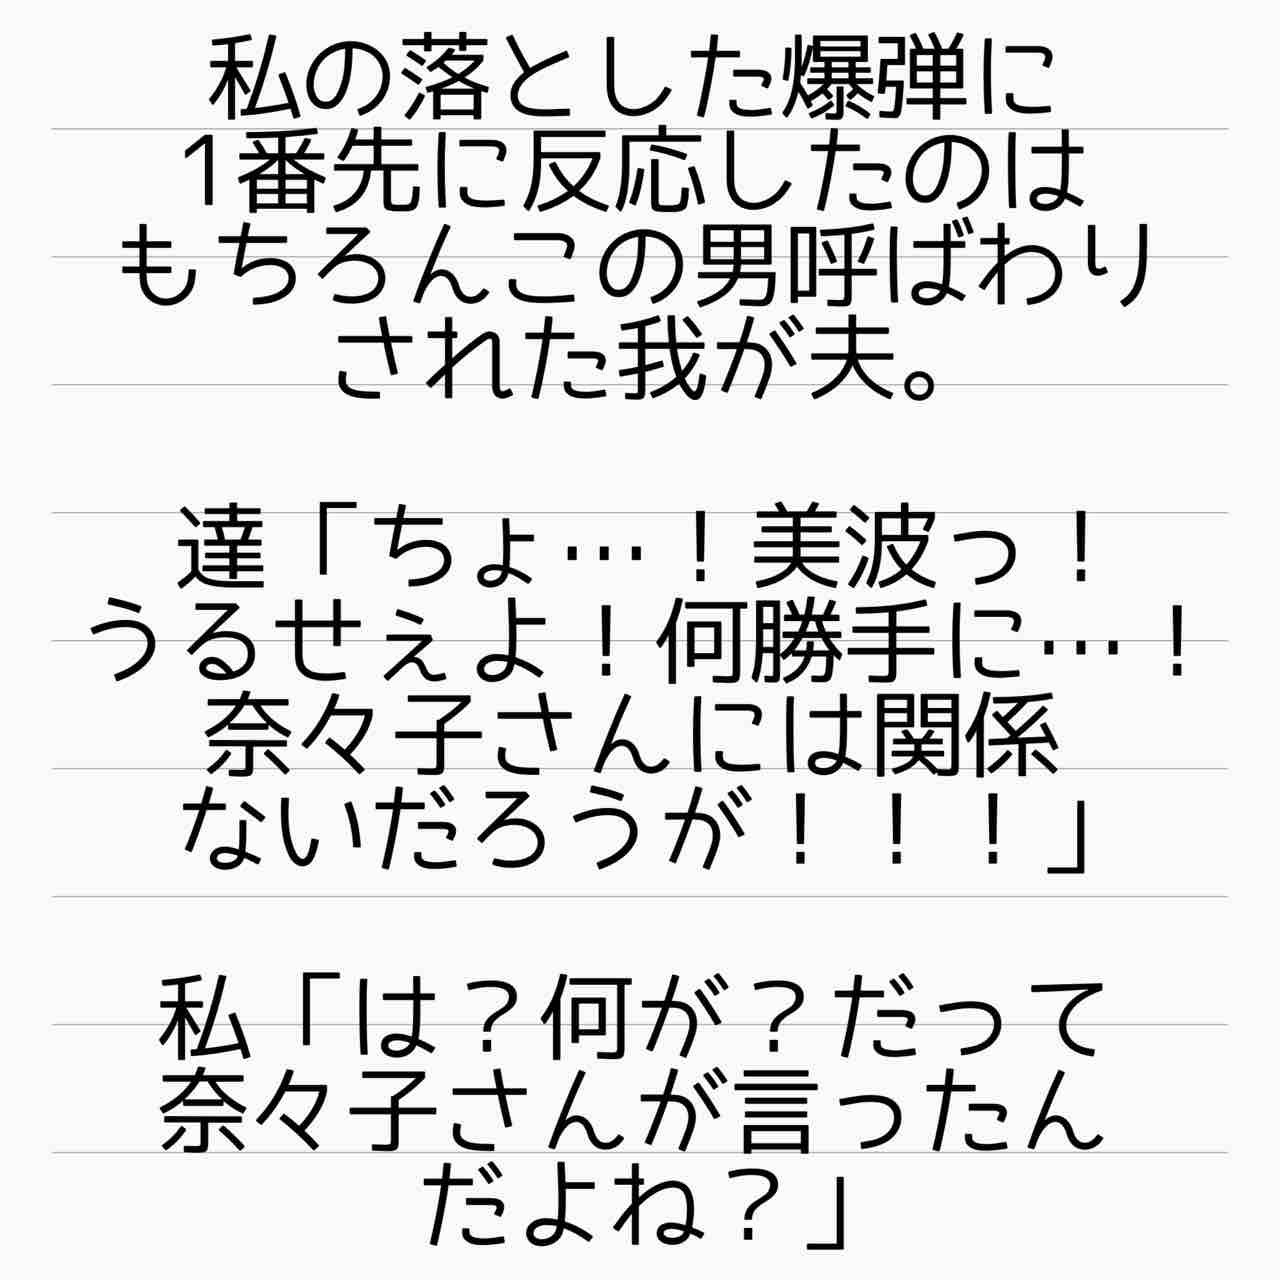 私の落とした爆弾に
1番先に反応したのは
もちろんこの男呼ばわり
された我が夫。
達「ちょ…！美波っ！
うるせぇよ！何勝手に…！
奈々子さんには関係
ないだろうが！！！」
私「は？何が？だって
奈々子さんが言ったん
だよね？」